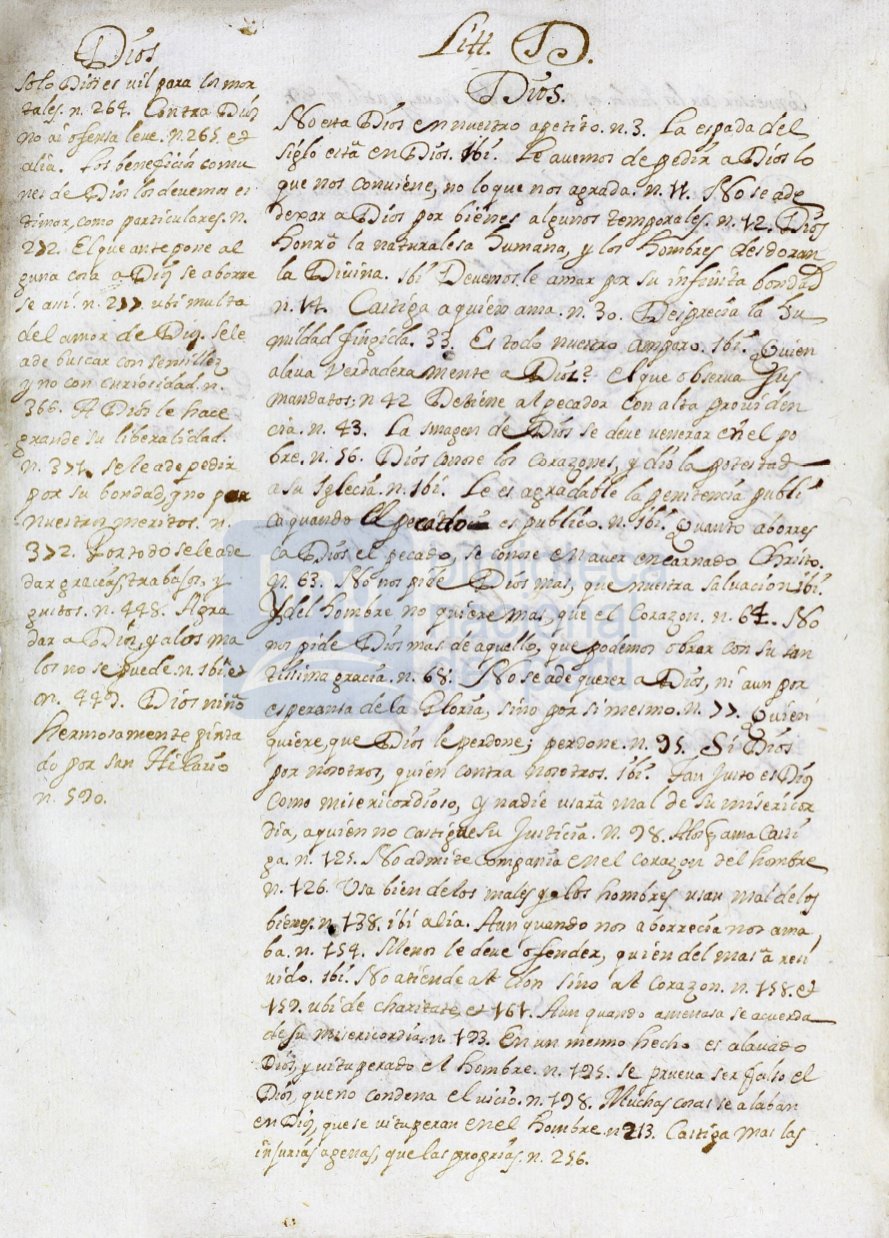 Litt. D.
Dios.
No esta Dios en nuestro apetito. n. 3. La espada del
siglo está en Dios. Ibi. Le avemos de pedir a Dios lo
que nos conviene, no lo que nos agrada. n. 11. No se a de
dexar a Dios por bienes algunos temporales. n. 12. Dios
honró la naturalesa humana, y los hombres desdoran
la Divina. ibi Devemosle amar por su infinita bondad
n. 14. Castiga a quien ama. n. 30. Desprecia la hu
mildad fingida. 33. Es todo nuestro amparo. Ibi. Quien
alava verdaderamente a Dios? el que observa sus
mandatos: n 42 Detiene al pecador con alta providen
cia. n. 43. La Imagen de Dios se deve venerar en el po
bre. n. 56. Dios conose los corazones, y dio la potestad
a su Iglecia. n. Ibi. Le es agradable la penitencia publi
ca quando el pecado es publico. n. Ibi. Quanto aborres
ca Dios el pecado, se conose en aver encarnado Christo.
n. 63. No nos pide Dios mas, que nuestra salvacion ibi.
Y del hombre no quiere mas, que el corazon. n. 64. No
nos pide Dios más de aquello, que podemos obrar con su san
tissima gracia. n. 68. No se ade querer a Dios, ni aun por
esperansa de la Gloria, sino por si mesmo. n. 77. Quien
quiere, que Dios le perdone; perdone. n. 95. Si Dios
por nosotros, quien contra nosotros. ibi. Tan Justo es Dios
como misericordioso, y nadie usará mal de su misericor
dia, a quien no castigue su Justicia. n. 98. Alos q ama casti
ga. n. 125. No admite compania en el corazon del hombre
n. 126. Usa bien de los males y los hombres usan mal de los
bienes. n. 138. ibi alia. Aun quando nos aborrecia nos ama
ba. n. 154. Menos le deve ofender, quien del mas a reci
vido. Ibi. No atiende al don sino al corazon. n. 158. et
159. ubi de charitate, et 161. Aun quando amenasa se acuerda
de su misericordia. n. 193. En un mesmo hecho es alavado
Dios, y vituperado el hombre. n. 195. se prueva ser falso el
Dios, que no condena el vicio. n. 198. Muchas cosas se alaban
en Dios, que se vituperan en el hombre. n 213. Castiga mas las
injurias agenas, que las proprias. n. 256.
Dios
Solo Dios es vil para los mor
tales. n. 264. Contra Dios
no ai ofensa leve. n. 265. et
alia. Los beneficios comu
nes de Dios los devemos es
timar, como particulares. n.
272. El que antepone al
guna cosa a Dios se aborre
se a si. n. 277. ubi multa
del amor de Dios. se le
ade buscar con sensillez
y no con curiosidad. n.
366. A Dios le hace
grande su liberalidad.
n. 371. se le ade pedir
por su bondad, y no por
nuestros meritos. n.
372. Por todo se le ade
dar gracias, trabajos, y
gustos. n. 448. Agra
dar a Dios, y a los ma
los no se puede. n. ibi et
n. 449. Dios niño
hermosamente pinta
do por san Hilario
n. 590.
biblioteca
nacional
del perú